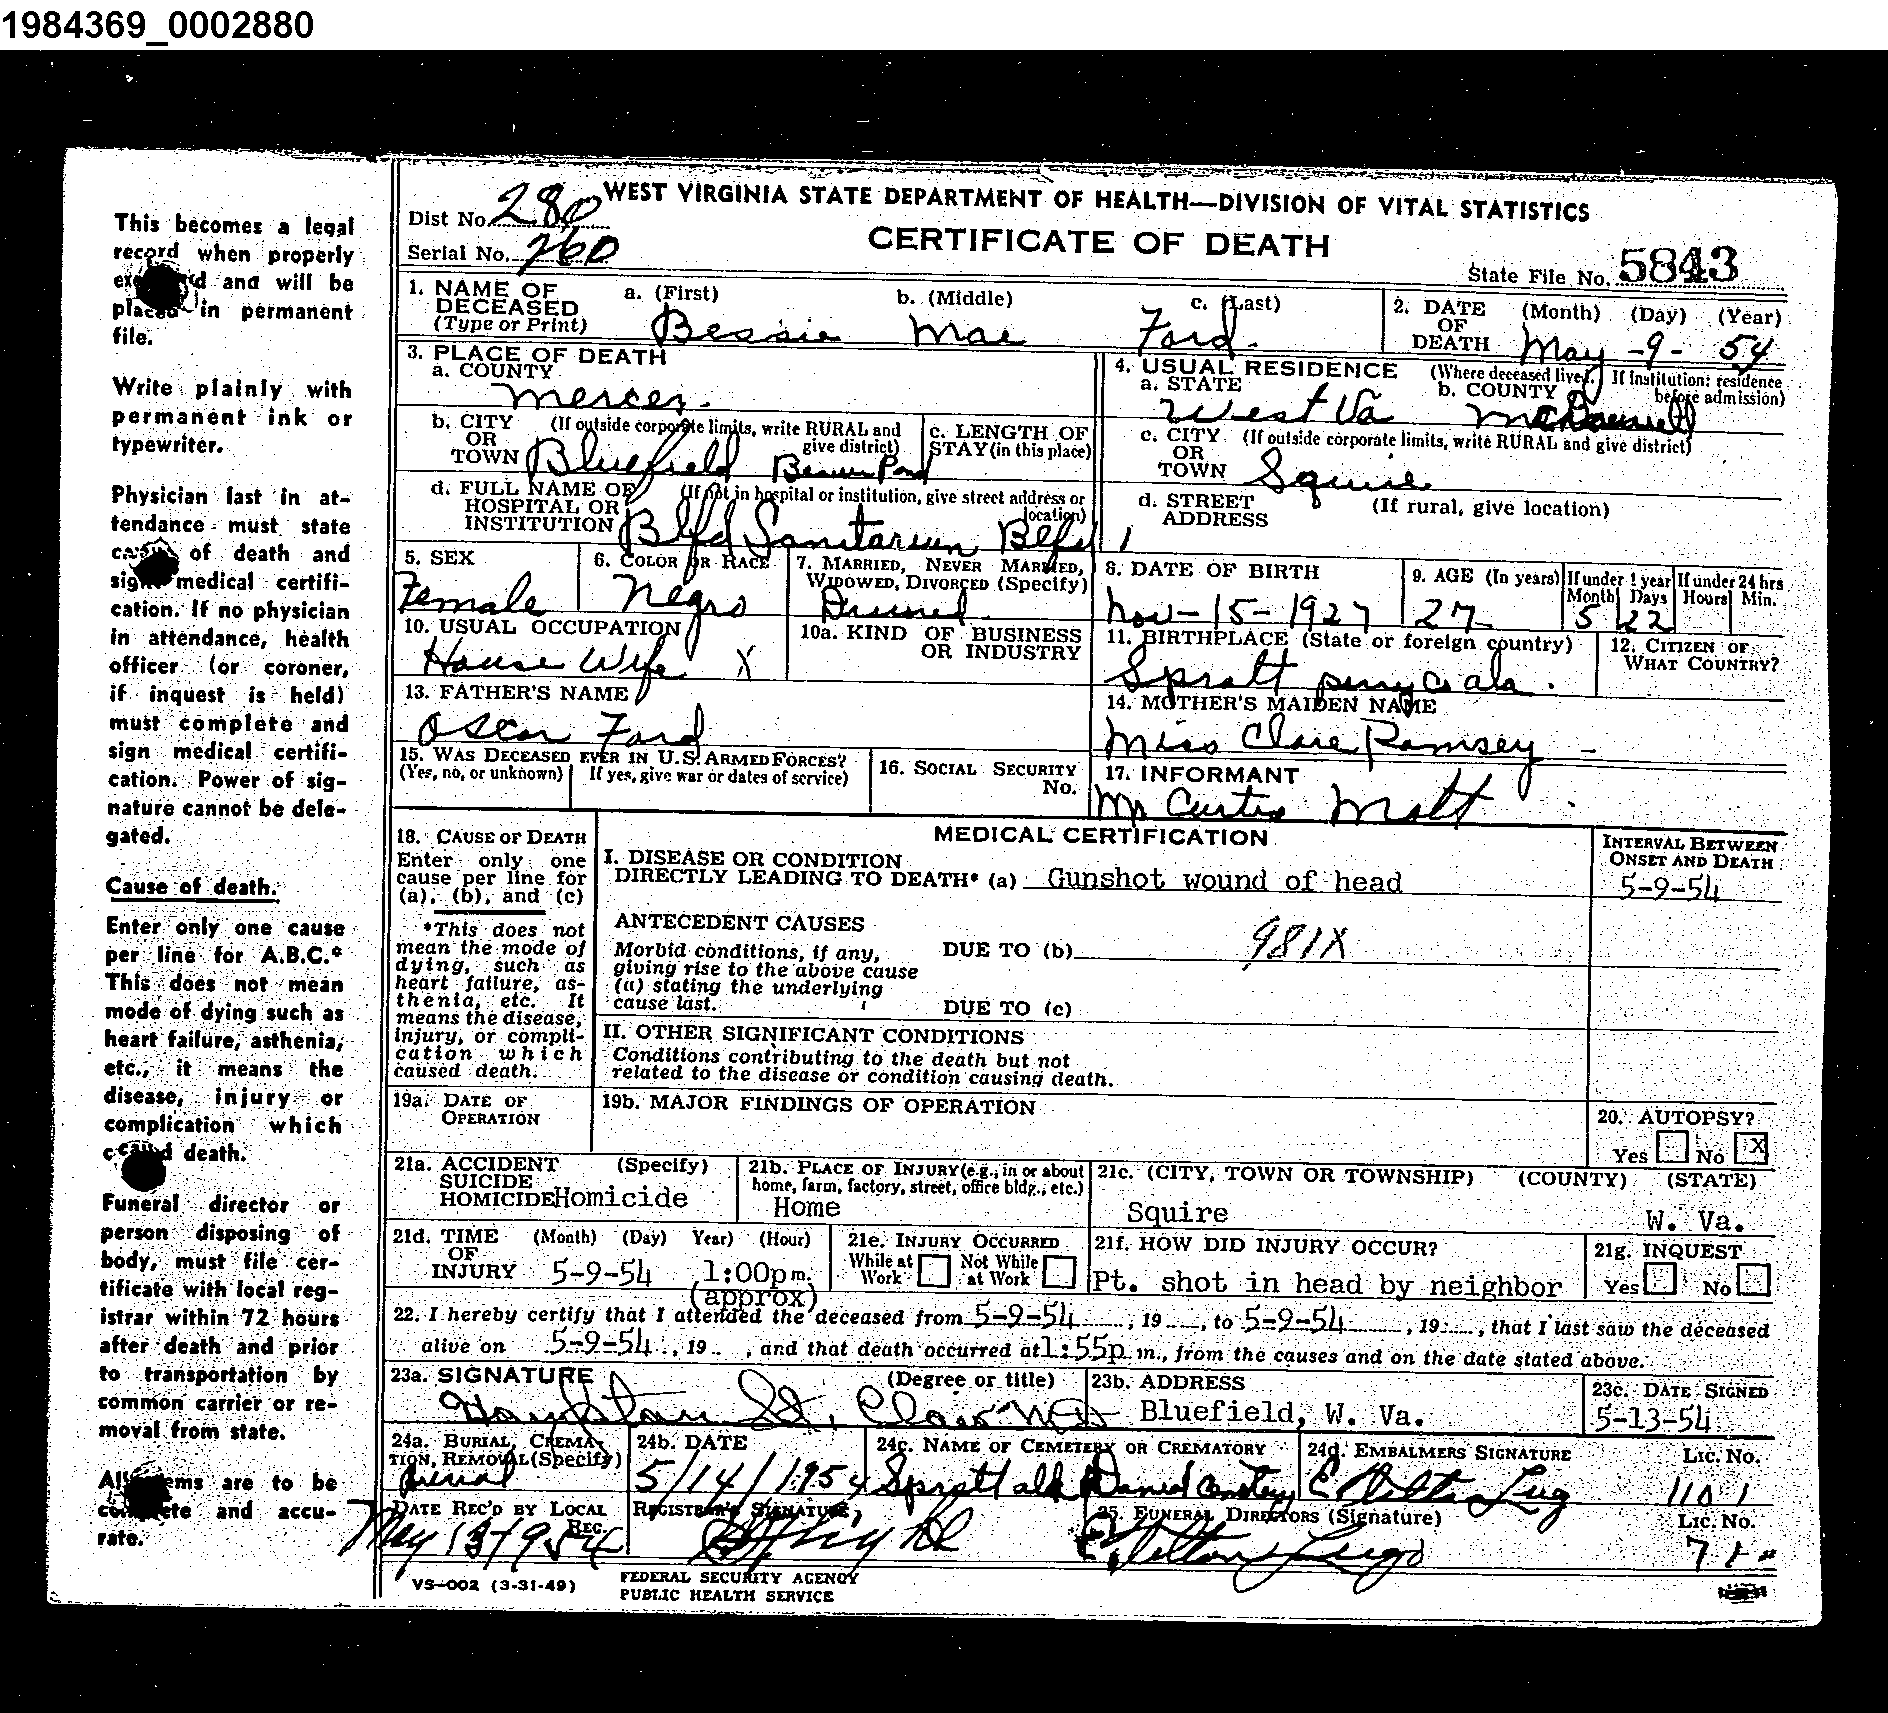 1984369_0002880
This becomes a legal
record when properly
and will be
placed in permanent
file.
Write plainly with
permanent ink or
typewriter.
Physician last in at-
tendance must state
of death and
sign medical certifi-
cation. If no physician
in attendance, health
officer (or coroner,
if inquest is held)
must complete and
sign medical certifi-
cation. Power of sig-
nature cannot be dele-
gated.
Cause of death.
Enter only one cause
per line for A.B.C.*
This does not mean
mode of dying such as
heart failure, asthenia,
etc., it means the
disease, injury or
complication which
death.
Funeral director or
person disposing of
body, must file cer-
tificate with local reg-
istrar within 72 hours
after death and prior
to transportation by
common carrier or re-
moval from state.
are to be
and accu-
rate.
WEST VIRGINIA STATE DEPARTMENT OF HEALTH—DIVISION OF VITAL STATISTICS
Dist No. 280
CERTIFICATE OF DEATH
Serial No. 260
State File No. 5843
1. NAME OF DECEASED (Type or Print) a. (First) b. (Middle) c. (Last)
Bessie Mae Ford.
2. DATE OF DEATH (Month) (Day) (Year)
May -9- 54
3. PLACE OF DEATH
a. COUNTY
Mercer.
4. USUAL RESIDENCE (Where deceased lived. If institution: residence before admission)
a. STATE b. COUNTY
West Va McDowell
b. CITY OR TOWN (If outside corporate limits, write RURAL and give district)
Bluefield Beaver Pond
c. LENGTH OF STAY (in this place)
c. CITY OR TOWN (If outside corporate limits, write RURAL and give district)
Squire
d. FULL NAME OF HOSPITAL OR INSTITUTION (If not in hospital or institution, give street address or location)
Blfd Sanitarium Blfd
d. STREET ADDRESS (If rural, give location)
5. SEX
Female
6. COLOR OR RACE
Negro
7. MARRIED, NEVER MARRIED, WIDOWED, DIVORCED (Specify)
8. DATE OF BIRTH
Nov-15-1927
9. AGE (In years)
27
If under 1 year Month Days
5 22
If under 24 hrs Hours Min.
10. USUAL OCCUPATION
House Wife X
10a. KIND OF BUSINESS OR INDUSTRY
11. BIRTHPLACE (State or foreign country)
Spratt perry co ala.
12. CITIZEN OF WHAT COUNTRY?
13. FATHER'S NAME
Oscar Ford
14. MOTHER'S MAIDEN NAME
Miss Clare Ramsey -
15. WAS DECEASED EVER IN U.S. ARMED FORCES?
(Yes, no, or unknown) If yes, give war or dates of service)
16. SOCIAL SECURITY No.
17. INFORMANT
Mr Curtis Mott
18. CAUSE OF DEATH
Enter only one
cause per line for
(a), (b), and (c)
*This does not
mean the mode of
dying, such as
heart failure, as-
thenia, etc. It
means the disease,
injury, or compli-
cation which
caused death.
MEDICAL CERTIFICATION
I. DISEASE OR CONDITION
DIRECTLY LEADING TO DEATH* (a) Gunshot wound of head
INTERVAL BETWEEN ONSET AND DEATH
5-9-54
ANTECEDENT CAUSES
Morbid conditions, if any,
giving rise to the above cause
(a) stating the underlying
cause last.
DUE TO (b) 981X
DUE TO (c)
II. OTHER SIGNIFICANT CONDITIONS
Conditions contributing to the death but not
related to the disease or condition causing death.
19a. DATE OF OPERATION
19b. MAJOR FINDINGS OF OPERATION
20. AUTOPSY?
Yes No X
21a. ACCIDENT SUICIDE HOMICIDE (Specify)
Homicide
21b. PLACE OF INJURY (e.g., in or about home, farm, factory, street, office bldg., etc.)
Home
21c. (CITY, TOWN OR TOWNSHIP) (COUNTY) (STATE)
Squire W. Va.
21d. TIME OF INJURY (Month) (Day) Year) (Hour)
5-9-54 1:00pm.
(approx)
21e. INJURY OCCURRED
While at Work Not While at Work
21f. HOW DID INJURY OCCUR?
Pt. shot in head by neighbor
21g. INQUEST
Yes No
22. I hereby certify that I attended the deceased from 5-9-54, 19, to 5-9-54, 19, that I last saw the deceased
alive on 5-9-54, 19, and that death occurred at 1:55p m., from the causes and on the date stated above.
23a. SIGNATURE (Degree or title)
St. Clair MD
23b. ADDRESS
Bluefield, W. Va.
23c. DATE SIGNED
5-13-54
24a. BURIAL, CREMATION, REMOVAL (Specify)
Burial
24b. DATE
5/14/1954
24c. NAME OF CEMETERY OR CREMATORY
Spratt ala Daniel Cemetery
24d. EMBALMERS SIGNATURE Lic. No.
1101
DATE REC'D BY LOCAL REG.
May 13 1954
REGISTRAR'S SIGNATURE
25. FUNERAL DIRECTORS (Signature) Lic. No.
71
VS-002 (3-31-49)
FEDERAL SECURITY AGENCY
PUBLIC HEALTH SERVICE